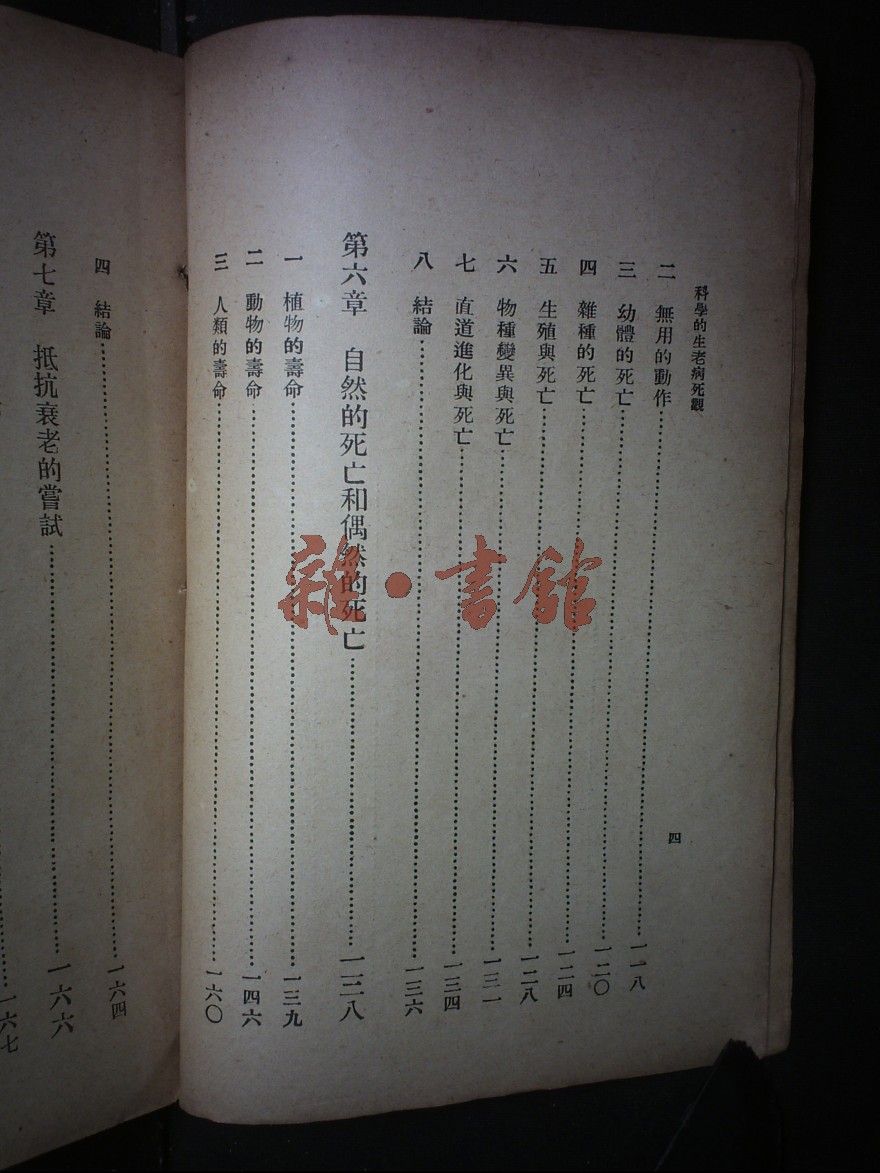 科學的生老病死觀
四
二 無用的動作 一一八
三 幼體的死亡 一二〇
四 雜種的死亡 一二四
五 生殖與死亡 一二八
六 物種變異與死亡 一三一
七 直道進化與死亡 一三四
八 結論 一三六
第六章 自然的死亡和偶然的死亡 一三八
一 植物的壽命 一三九
二 動物的壽命 一四六
三 人類的壽命 一六〇
四 結論 一六四
第七章 抵抗衰老的嘗試 一六六
一六七
雜·書館